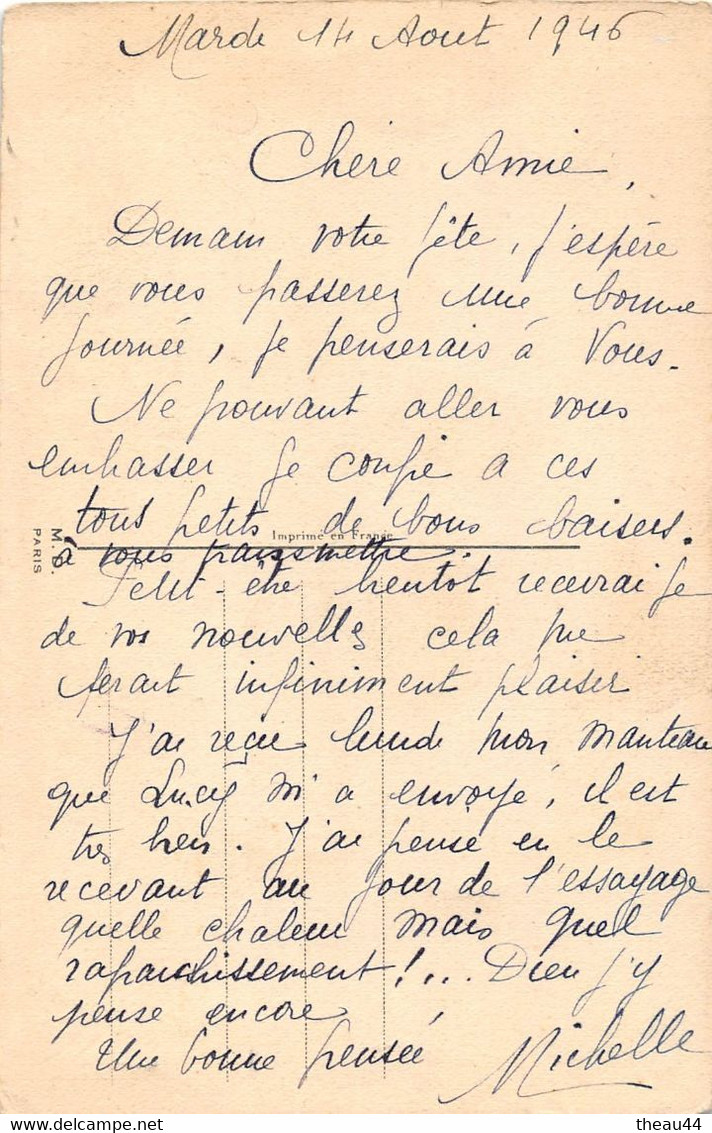 Marde 14 Aout 1946
Chère Amie,
Demain votre fête, j'espère
que vous passerez une bonne
journée, je penserais à Vous.
Ne pouvant aller vous
embrasser je confie a ces
tous petits de bons baisers.
Imprimé en France
à vous transmettre.
M. D.
PARIS
Peut-être bientot recevrai je
de vos nouvelles cela me
ferait infiniment plaisir
J'ai reçu lunde mon manteau
que Lucy m'a envoyé, il est
tres bien. J'ai pensé en le
recevant au jour de l'essayage
quelle chaleur mais quel
rafraichissement!... Dieu j'y
pense encore
Une bonne pensée Michelle
theau44